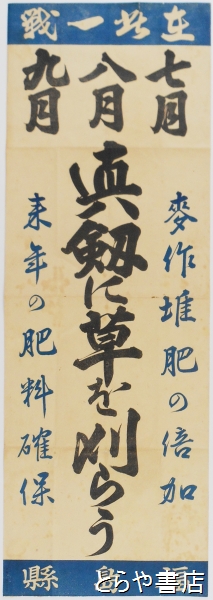 在此一戰
七月
八月
九月
麥作堆肥の倍加
真剱に草を刈らう
来年の肥料確保
福島縣
とらや書店